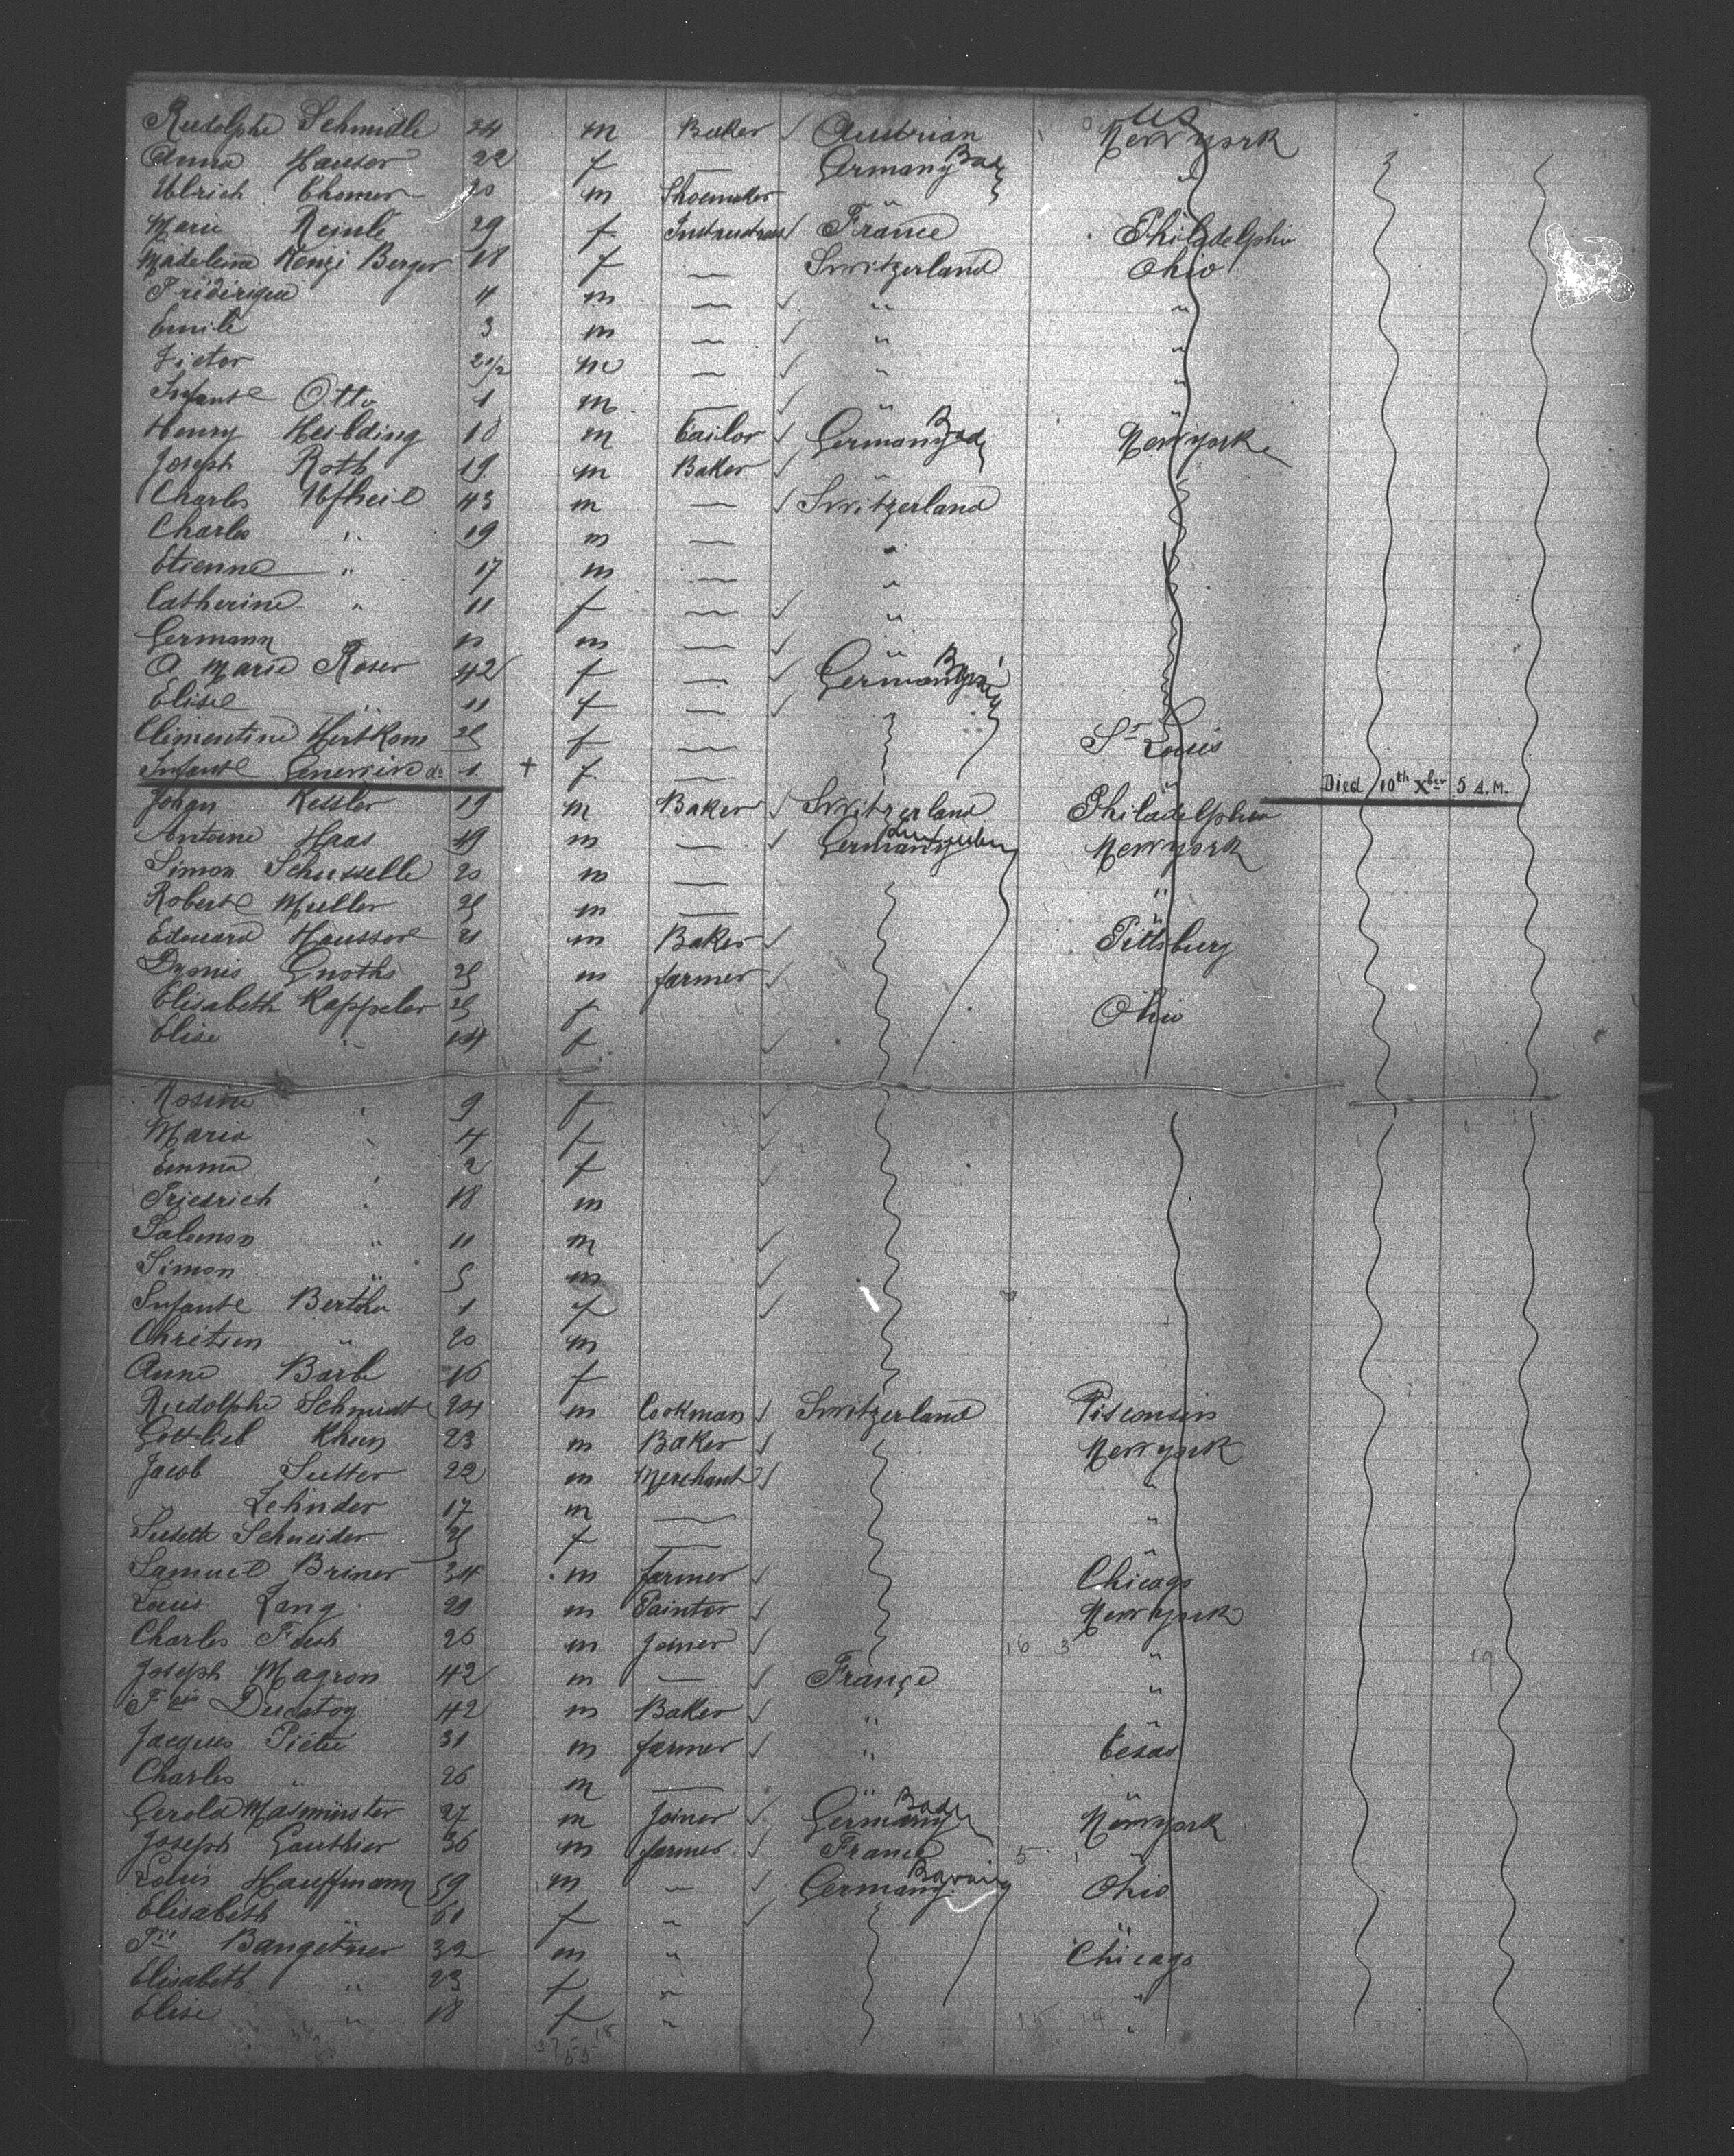 US
Rudolphe Schmidle 24 m Baker Austrian Newyork
Anna Hauser 22 f — Germany Bad "
Ulrich Thomer 20 m Shoemaker "
Marie Reinle 29 f France Philadelphia
Madelena Kenzi Berger 18 f — Switzerland Ohio
4 m — " "
Emile 3 m — " "
Victor 2 1/2 m — " "
Infant Otto 1 m — " "
Henry Heilding 18 m Tailor Germany Bad Newyork
Joseph Roth 19 m Baker
Charles Ufheil 43 m — Switzerland
Charles " 19 m — "
Etienne " 17 m — "
Catherine " 11 f — "
Germann m — "
A Marie Roser 42 f — Germany
Elise " 11 f —
Climentine Hertkorn 25 f — St Louis
Infant do 1 + f — " Died 10th Xber 5 A.M.
Johan Kessler 19 m Baker Switzerland Philadelphia
Antoine Haas 49 m — Germany Newyork
Simon Schusselle 20 m — "
Robert Muller 25 m — "
Edouard Hausser 21 m Baker Pittsburg
Dyonis Gnoths 25 m farmer
Elisabeth Kappeler 25 f Ohio
Elise " 14 f
Rosine " 9 f
Maria " 4 f
Emma 2 f
Friedrich " 18 m
Salomon " 11 m
Simon " 5 m
Infant Bertha 1 f
Chretien " 20 m
Anne Barbe 16 f
Rudolphe Schmidt 24 m Cookman Switzerland Wisconsin
Gottlieb Khun 23 m Baker Newyork
Jacob Sutter 22 m Merchant "
Zehnder 17 m — "
Suseth Schneider 25 f — "
Samuel Briner 34 m farmer Chicago
Louis Lang m Painter Newyork
Charles Fäsh 26 m Joiner 16 3 " 19
Joseph Magron 42 m — France "
Fcois Ducatoy 42 m Baker " "
Jacques Piétu 31 m farmer " Texas
Charles " 26 m — " "
Gerold Masmünster 27 m Joiner Germany Bade Newyork
Joseph Gauthier 36 m farmer France 5 "
Louis Hauffmann 59 m — Germany Bavaria Ohio
Elisabeth " 61 f " "
Bangetner 32 m " Chicago
Elisabeth " 23 f " "
Elise " 18 f " 15 14 "
37 18
55